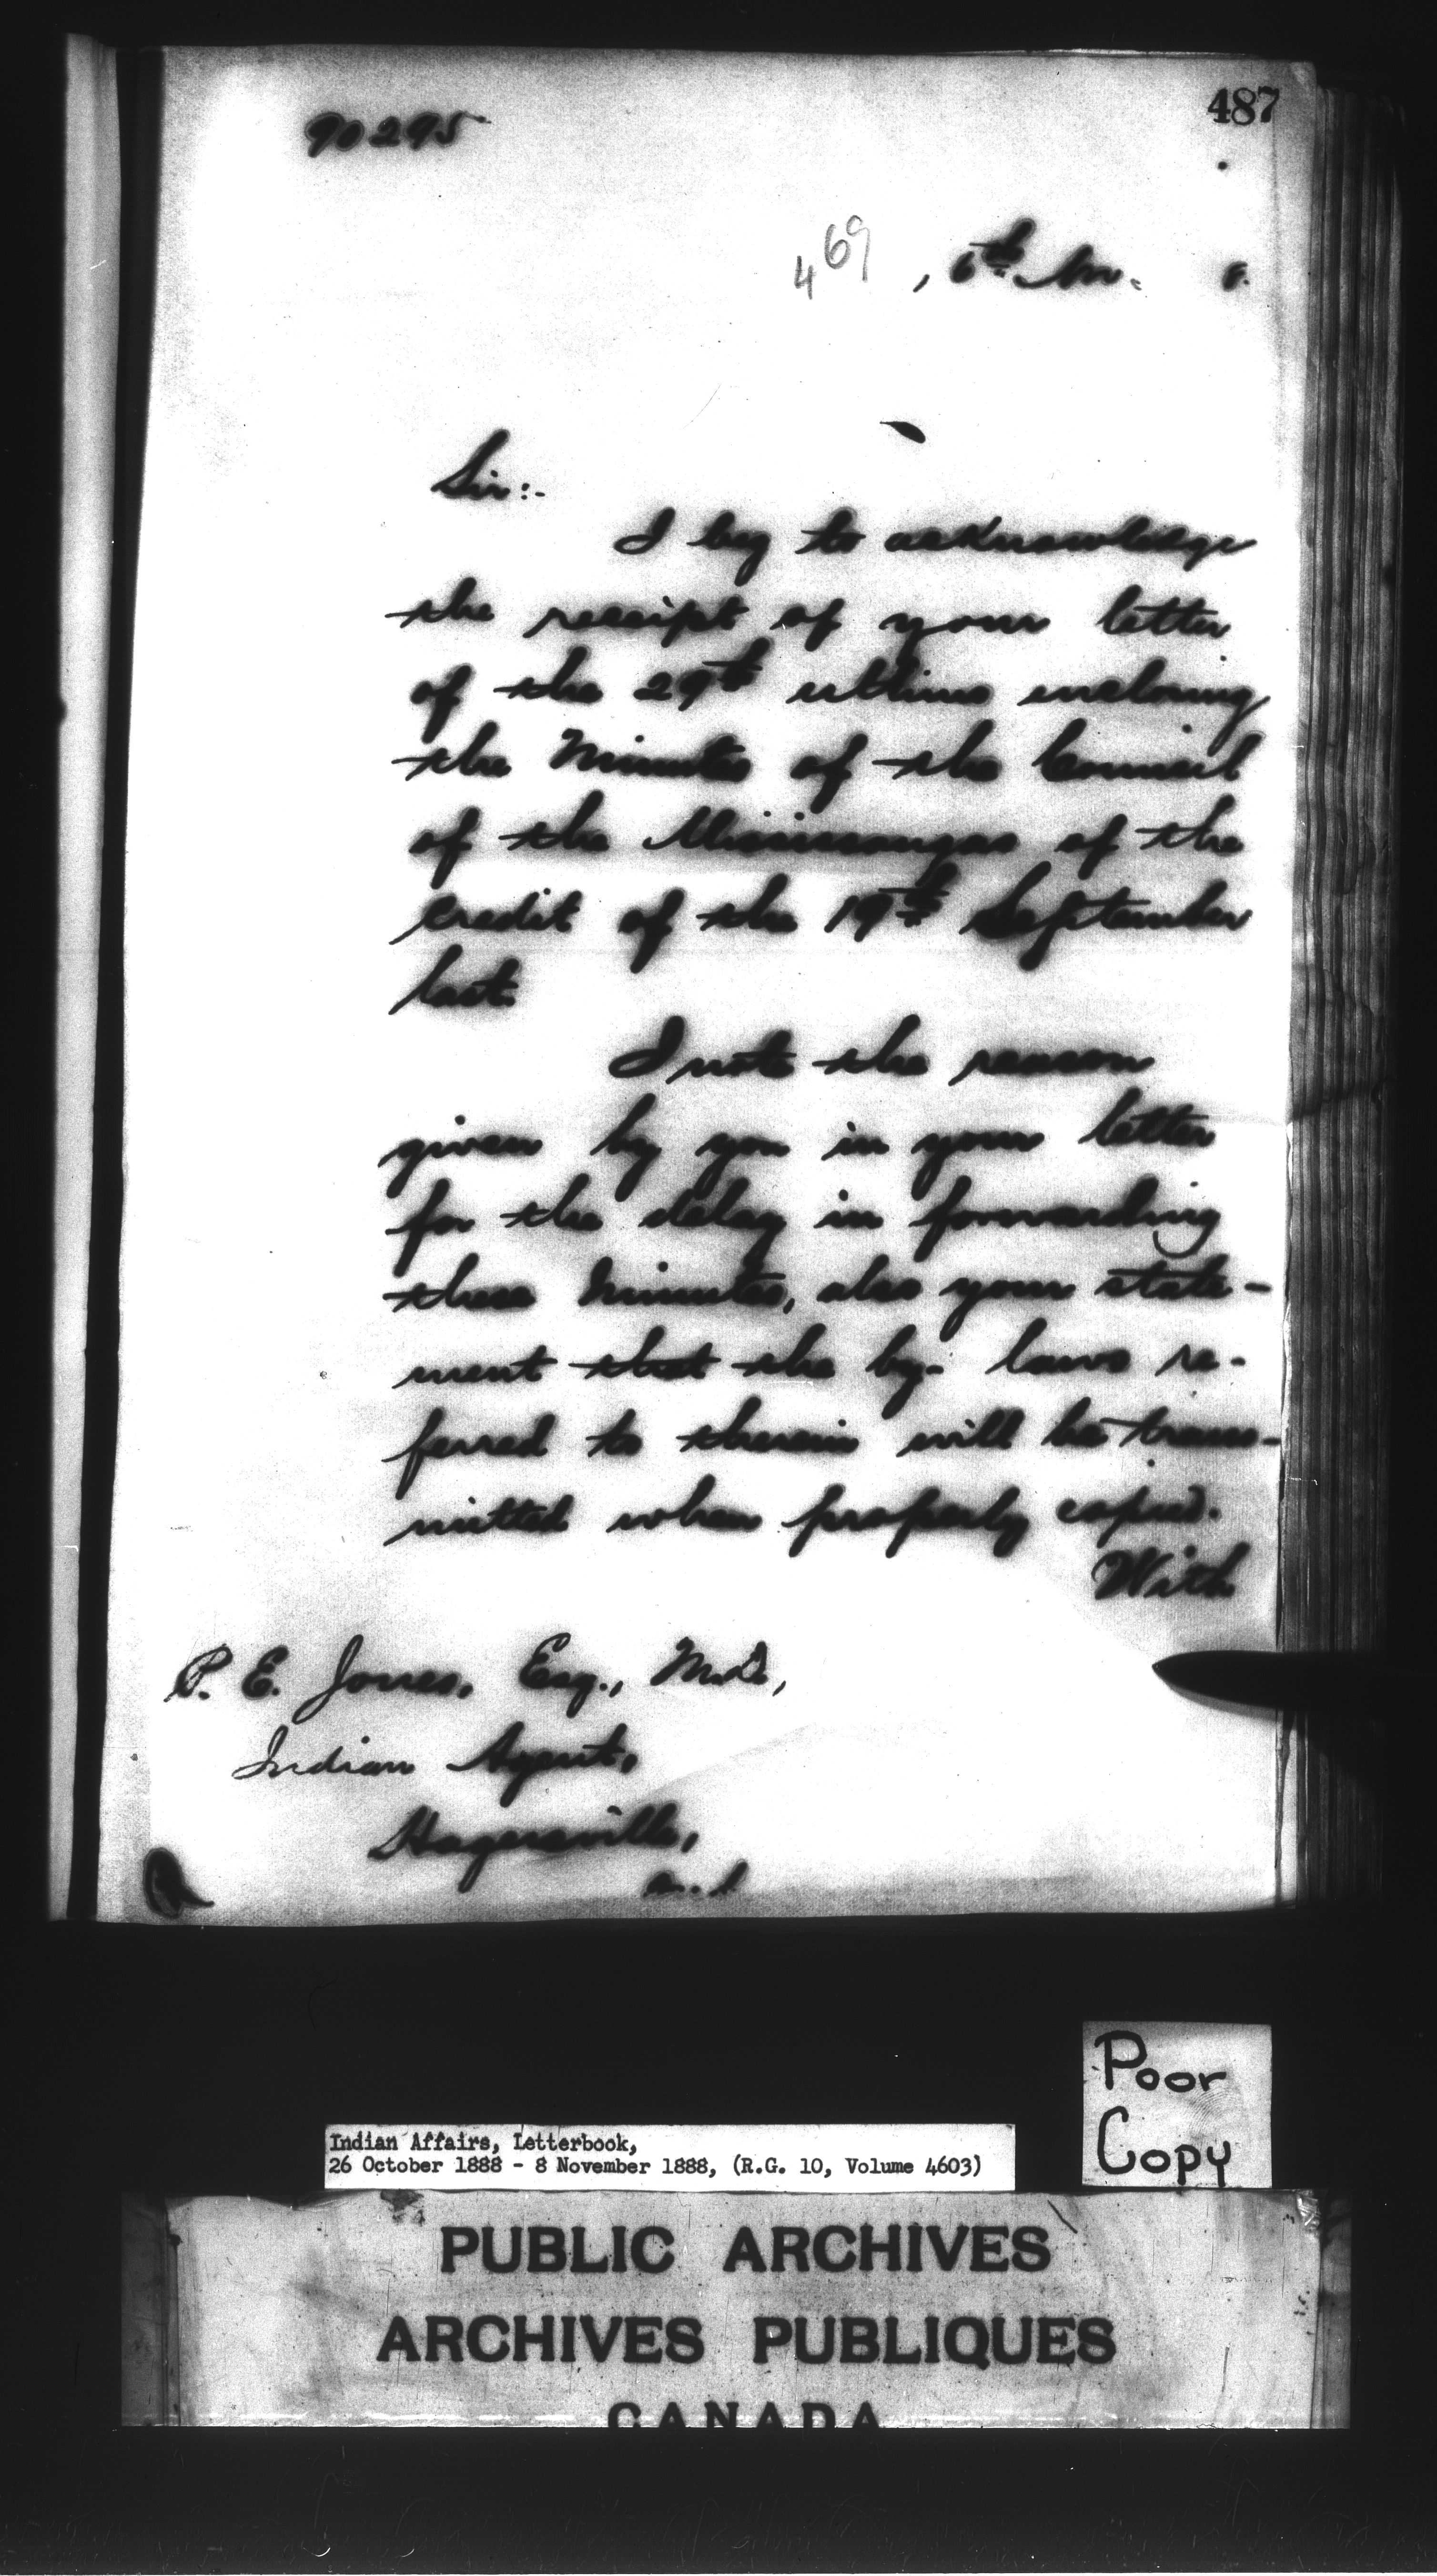 487
90295
469
, 6th Nov. 8.
Sir:-
I beg to acknowledge
the receipt of your letter
of the 29th ultimo inclosing
the Minutes of the Council
of the Mississaugas of the
Credit of the 19th September
last.
I note the reason
given by you in your letter
for the delay in forwarding
these Minutes, also your state-
ment that the by-laws re-
ferred to therein will be trans-
mitted when properly copied.
With
P. E. Jones, Esq., M.D.,
Indian Agent,
Hagersville,
Ont.
Poor
Copy
Indian Affairs, Letterbook,
26 October 1888 - 8 November 1888, (R.G. 10, Volume 4603)
PUBLIC ARCHIVES
ARCHIVES PUBLIQUES
CANADA